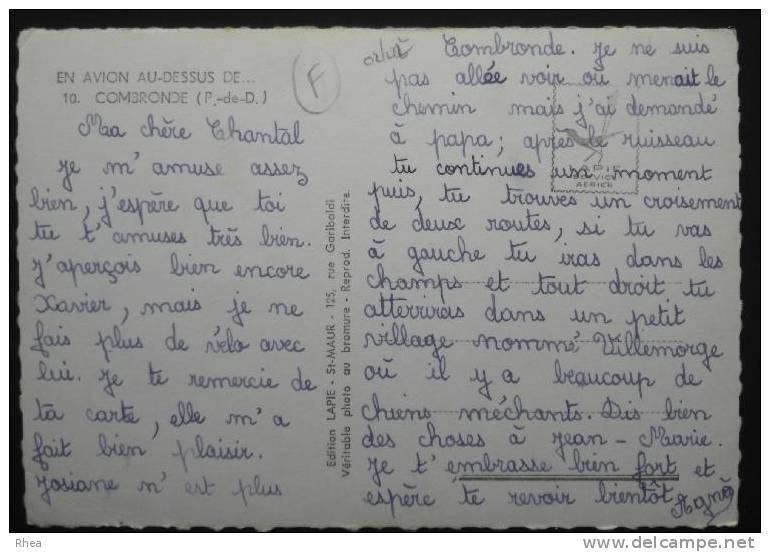 EN AVION AU-DESSUS DE...
10. COMBRONDE (P.-de-D.)
F
Ma chère Chantal
Je m'amuse assez
bien, j'espère que toi
tu t'amuses très bien.
J'aperçois bien encore
Xavier, mais je ne
fais plus de vélo avec
lui. Je te remercie de
ta carte, elle m'a
fait bien plaisir.
Josiane n'est plus
Edition LAPIE - St-MAUR - 125, rue Garibaldi
Véritable photo au bromure - Reprod. Interdite.
Combronde. Je ne suis
pas allée voir où menait le
chemin mais j'ai demandé
à papa; après le ruisseau
tu continues un moment
puis, tu trouves un croisement
de deux routes, si tu vas
à gauche tu iras dans les
champs et tout droit tu
atterriras dans un petit
village nommé Villemorge
où il y a beaucoup de
chiens méchants. Dis bien
des choses à Jean-Marie.
Je t'embrasse bien fort et
espère te revoir bientôt
Agnès
LAPIE
SERVICE
AERIEN
Rhea
www.delcampe.net